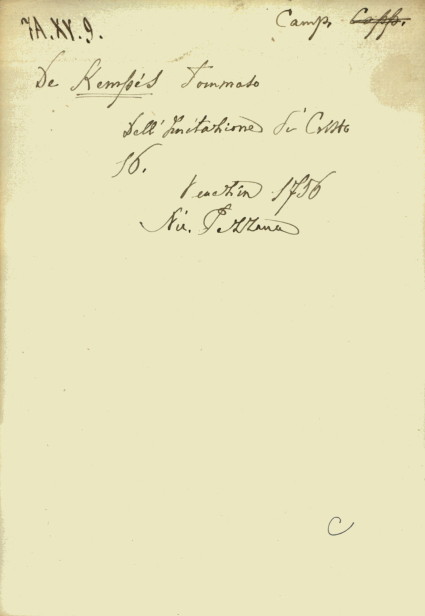 7A.XV.9.
Camp. Capp.
De Kempés Tommaso
Dell' Imitazione di Cristo
16.
Venezia 1756
Nic. Pezzana
C